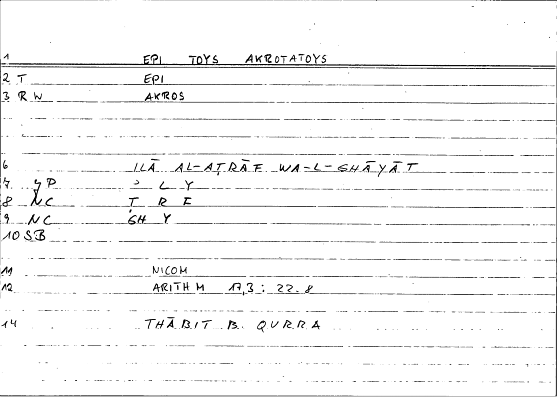 1 EPI TOYS AKROTATOYS
2 T EPI
3 R W AKROS
6 ILĀ AL-AṬRĀF WA-L-GHĀYĀT
7 YP ʾ L Y
8 NC Ṭ R F
9 NC GH Y
10 SB
11 NICOM
12 ARITHM 17,3 : 22.8
14 THĀBIT B. QURRA